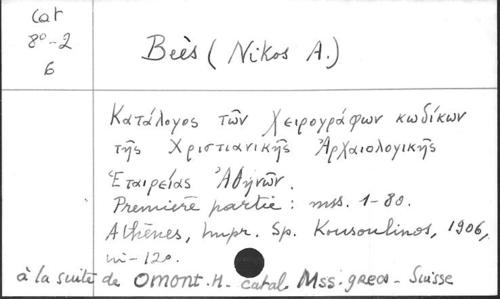 Cat
8º-2
6
Beès (Nikos A.)
Κατάλογος τῶν Χειρογράφων κωδίκων
τῆς Χριστιανικῆς Ἀρχαιολογικῆς
Ἑταιρείας Ἀθηνῶν.
Première partie : mss. 1-80.
Athènes, Impr. Sp. Kousoulinos, 1906,
in-12º.
à la suite de OMONT. H- catal. Mss. grecs - Suisse